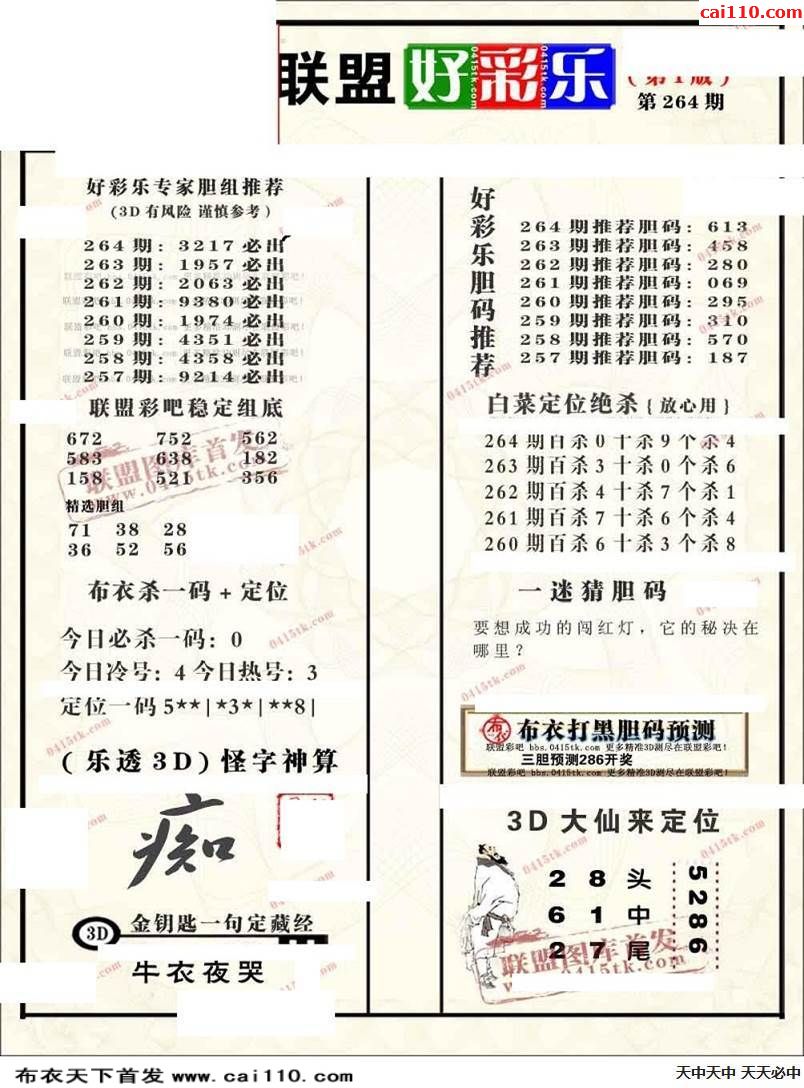 cai110.com
联盟 好彩乐
(第1版)
第264期
好彩乐专家胆组推荐
(3D有风险 谨慎参考)
264期: 3217必出
263期: 1957必出
262期: 2063必出
261期: 9380必出
260期: 1974必出
259期: 4351必出
258期: 4358必出
257期: 9214必出
联盟彩吧稳定组底
672 752 562
583 638 182
158 521 356
精选胆组
71 38 28
36 52 56
布衣杀一码+定位
今日必杀一码: 0
今日冷号: 4 今日热号: 3
定位一码5**|*3*|**8|
(乐透3D)怪字神算
痴
3D 金钥匙一句定藏经
牛衣夜哭
好彩乐胆码推荐
264期推荐胆码: 613
263期推荐胆码: 458
262期推荐胆码: 280
261期推荐胆码: 069
260期推荐胆码: 295
259期推荐胆码: 310
258期推荐胆码: 570
257期推荐胆码: 187
白菜定位绝杀{放心用}
264期百杀0十杀9个杀4
263期百杀3十杀0个杀6
262期百杀4十杀7个杀1
261期百杀7十杀6个杀4
260期百杀6十杀3个杀8
一迷猜胆码
要想成功的闯红灯，它的秘决在
哪里？
布衣 布衣打黑胆码预测
联盟彩吧 bbs.0415tk.com 更多精准3D测尽在联盟彩吧!
三胆预测286开奖
联盟彩吧 bbs.0415tk.com 更多精准3D测尽在联盟彩吧!
3D大仙来定位
2 8 头
6 1 中
2 7 尾
5286
联盟图库首发
www.0415tk.com
联盟图库首发
www.0415tk.com
布衣天下首发 www.cai110.com
天中天中 天天必中